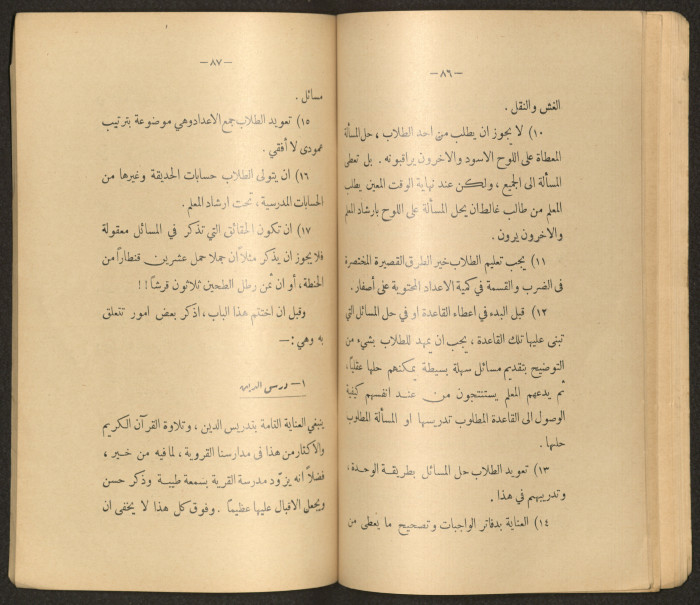 — ٨٦ —
الغش والنقل .
١٠) لا يجوز ان يطلب من احد الطلاب ، حل المسألة
المعطاة على اللوح الاسود والاخرون يراقبونه . بل تعطى
المسألة الى الجميع ، ولكن عند نهاية الوقت المعين يطلب
المعلم من طالب غالط ان يحل المسألة على اللوح بارشاد المعلم
والاخرون يرون .
١١) يجب تعليم الطلاب خير الطرق القصيرة المختصرة
فى الضرب والقسمة في كمية الاعداد المحتوية على أصفار .
١٢) قبل البدء في اعطاء القاعدة او في حل المسائل التي
تبنى عليها تلك القاعدة ، يجب ان يمهد للطلاب بشيء من
التوضيح بتقديم مسائل سهلة بسيطة يمكنهم حلها عقلياً ،
ثم يدعهم المعلم يستنتجون من عند انفسهم كيفية
الوصول الى القاعدة المطلوب تدريسها او المسألة المطلوب
حلها .
١٣) تعويد الطلاب حل المسائل بطريقة الوحدة ،
وتدريبهم في هذا .
١٤) العناية بدفاتر الواجبات وتصحيح ما يُعطى من
— ٨٧ —
مسائل .
١٥) تعويد الطلاب جمع الاعداد وهي موضوعة بترتيب
عمودى لا أفقي .
١٦) ان يتولى الطلاب حسابات الحديقة وغيرها من
الحسابات المدرسية ، تحت ارشاد المعلم .
١٧) ان تكون الحقائق التي تذكر في المسائل معقولة
فلا يجوز ان يذكر مثلاً ان جملا حمل عشرين قنطاراً من
الحنطة ، أو ان ثمن رطل الطحين ثلاثون قرشاً !!
وقبل ان اختتم هذا الباب ، اذكر بعض امور تتعلق
به وهي : —
١ – درس الدين
ينبغي العناية التامة بتدريس الدين ، وتلاوة القرآن الكريم
والاكثار من هذا فى مدارسنا القروية ، لما فيه من خير ،
فضلاً انه يزوّد مدرسة القرية بسمعة طيبة وذكر حسن
ويجعل الاقبال عليها عظيماً . وفوق كل هذا لا يخفى ان